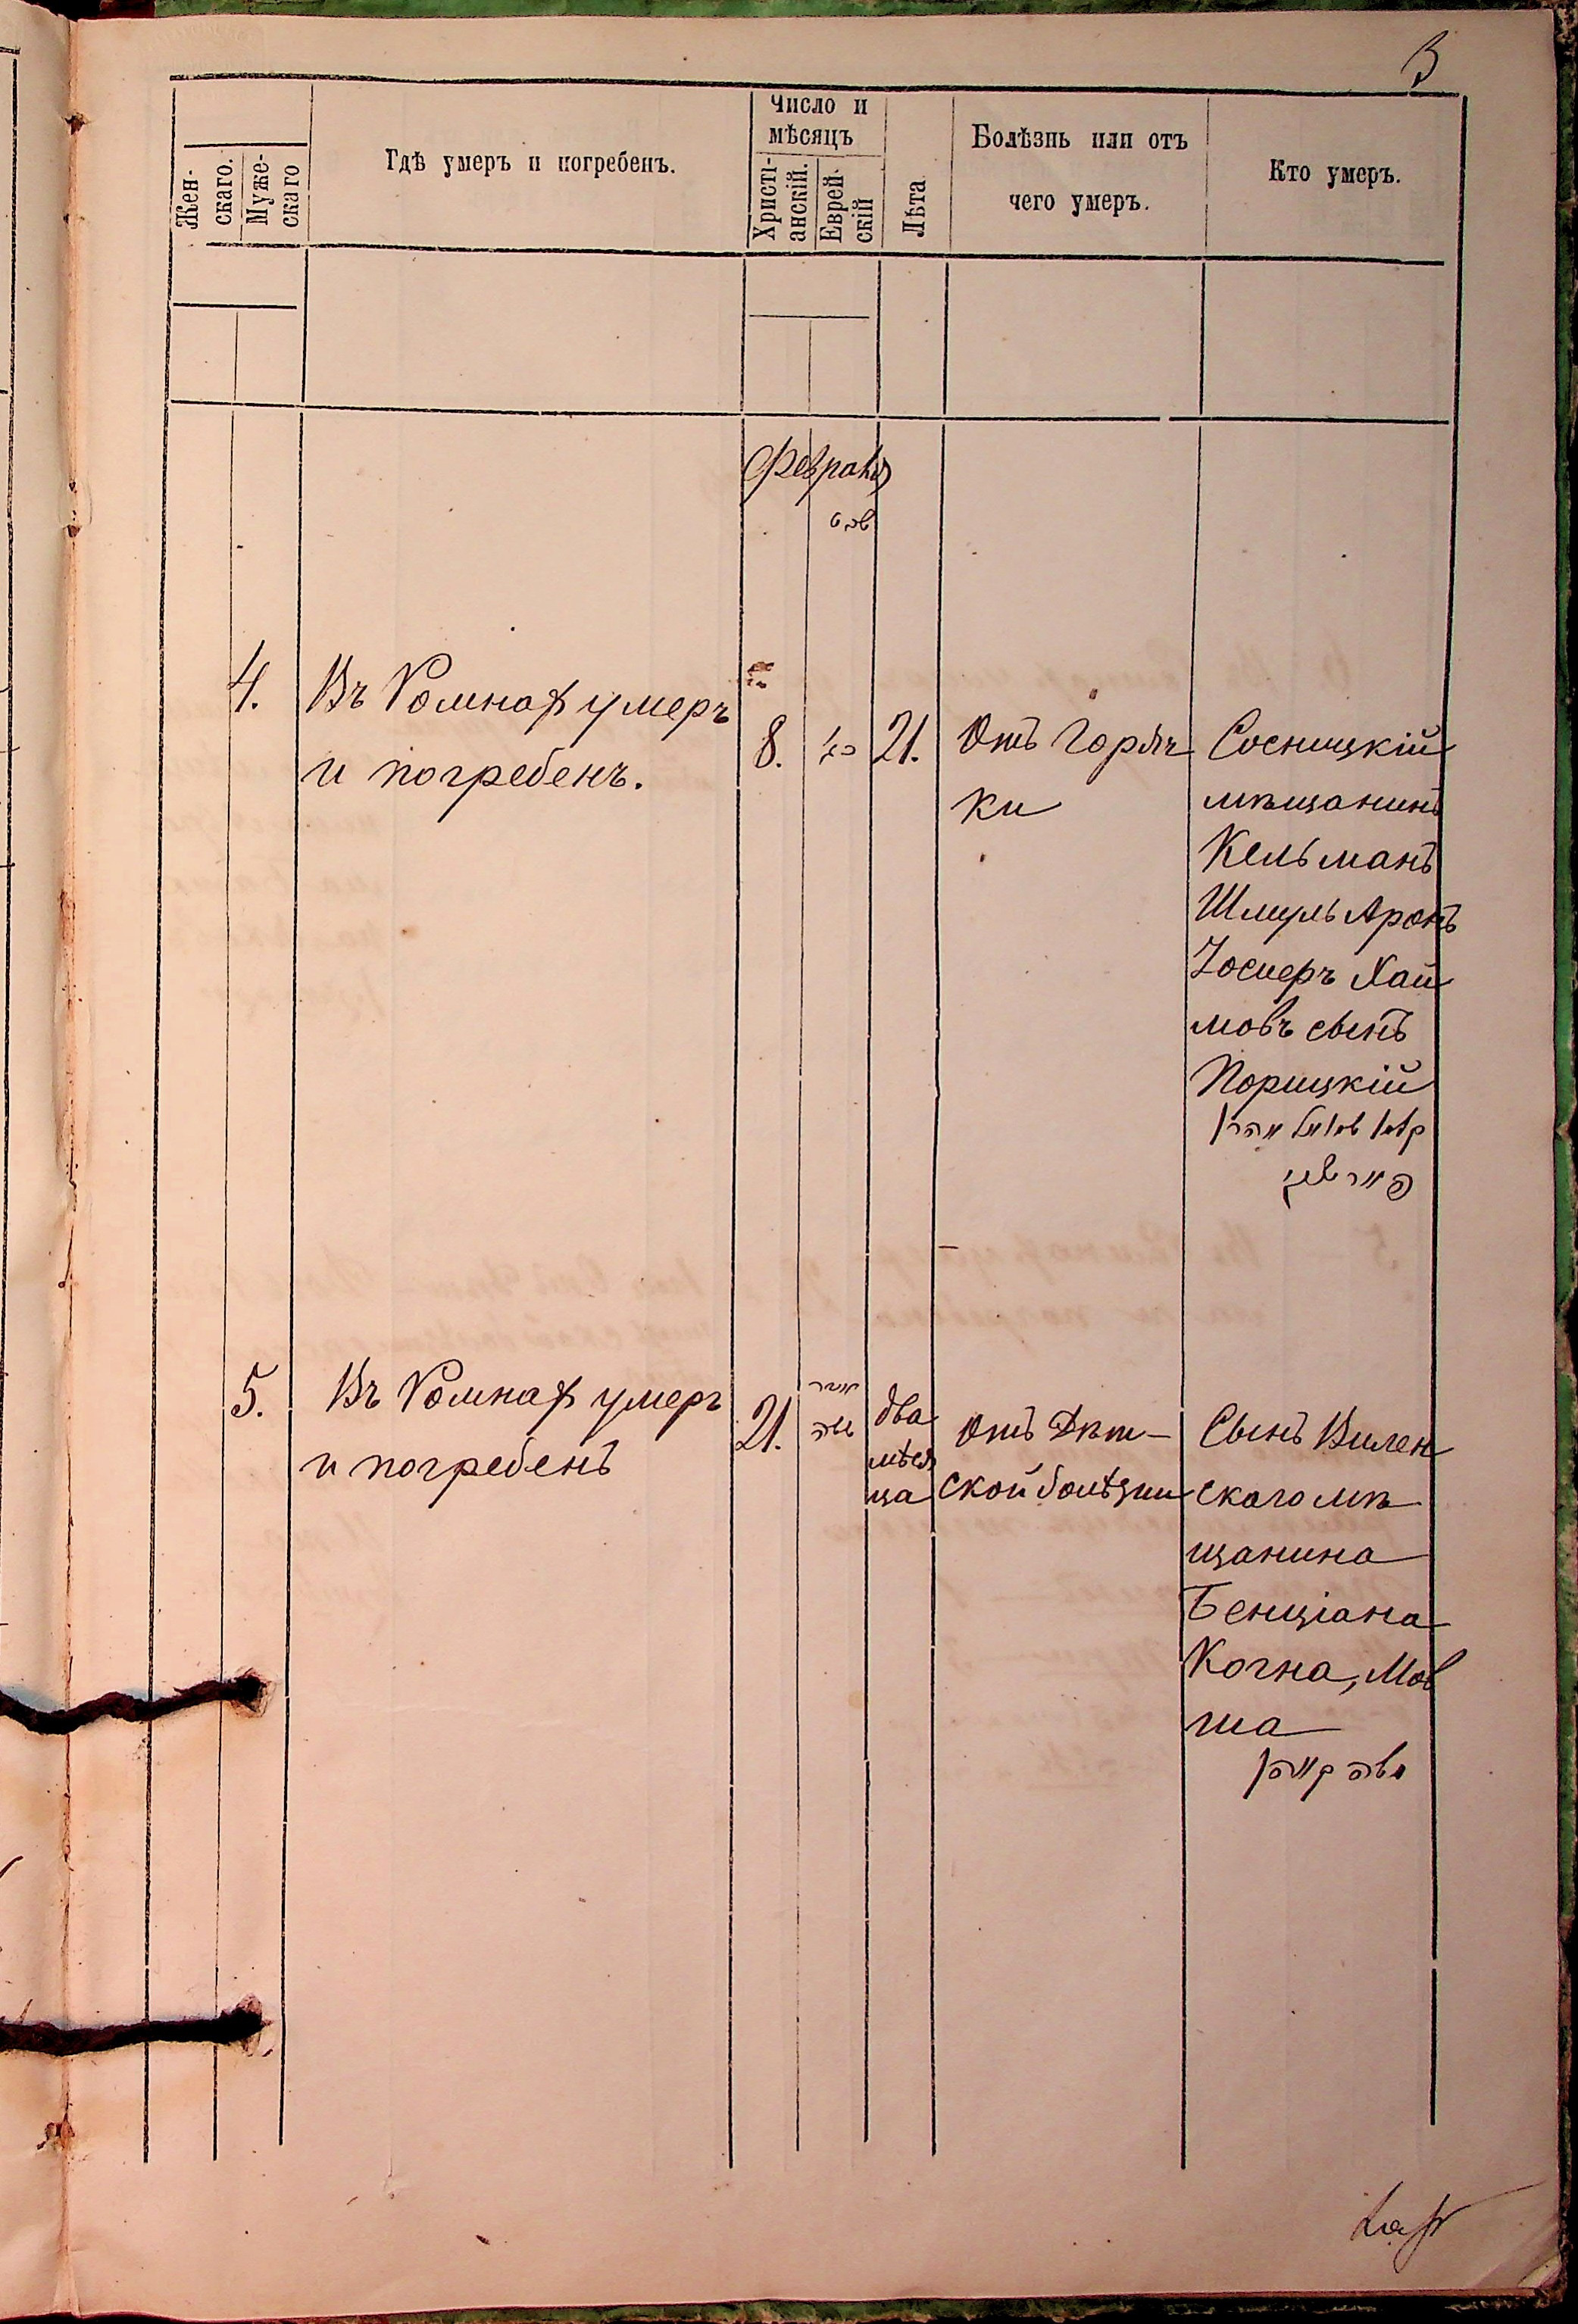 3
Жен-
скаго.
Муже-
скаго
Гдѣ умеръ и погребенъ.
Число и
мѣсяцъ
Христі-
анскій.
Еврей-
скій
Лѣта
Болѣзнь или отъ
чего умеръ.
Кто умеръ.
Февраль
4.
Въ Ромнах умеръ
и погребенъ.
8.
21.
Отъ Горяч
ки
Сосницкій
мѣщанинъ
Кельманъ
Шмуль Аронъ
Хай
мовъ сынъ
Порицкій
5.
Въ Ромнах умеръ
и погребенъ
21.
два
мѣся
ца
Отъ Дѣт-
ской болѣзни
Сынъ Вилен
скаго мѣ
щанина
Бенціана
Когна, Мов
ша